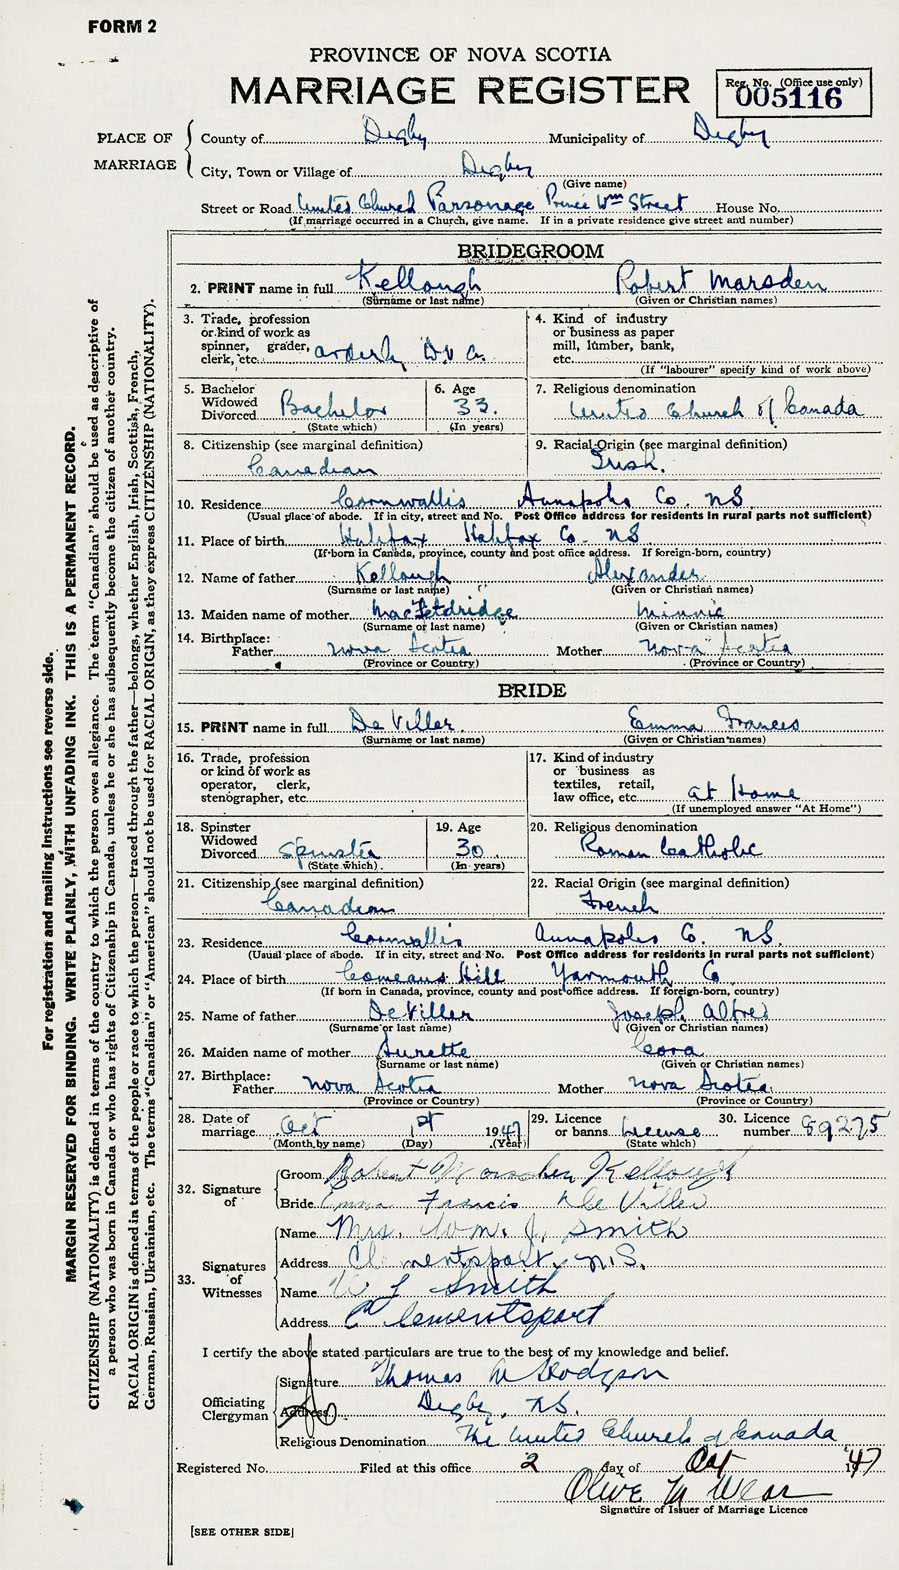 FORM 2
PROVINCE OF NOVA SCOTIA
MARRIAGE REGISTER
Reg. No. (Office use only)
005116
PLACE OF MARRIAGE
County of Digby Municipality of Digby
City, Town or Village of Digby
(Give name)
Street or Road United Church Parsonage Prince Wm Street House No.
(If marriage occurred in a Church, give name. If in a private residence give street and number)
BRIDEGROOM
2. PRINT name in full Kellough Robert Marsden
(Surname or last name) (Given or Christian names)
3. Trade, profession or kind of work as spinner, grader, clerk, etc. orderly D.V.A.
4. Kind of industry or business as paper mill, lumber, bank, etc.
(If "labourer" specify kind of work above)
5. Bachelor Widowed Divorced Bachelor
(State which)
6. Age 33.
(In years)
7. Religious denomination United Church of Canada
8. Citizenship (see marginal definition) Canadian
9. Racial Origin (see marginal definition) Irish.
10. Residence Cornwallis Annapolis Co. NS
(Usual place of abode. If in city, street and No. Post Office address for residents in rural parts not sufficient)
11. Place of birth Halifax Halifax Co. NS
(If born in Canada, province, county and post office address. If foreign-born, country)
12. Name of father Kellough Alexander
(Surname or last name) (Given or Christian names)
13. Maiden name of mother MacFetdridge Minnie
(Surname or last name) (Given or Christian names)
14. Birthplace:
Father Nova Scotia Mother Nova Scotia
(Province or Country) (Province or Country)
BRIDE
15. PRINT name in full De Viller Emma Frances
(Surname or last name) (Given or Christian names)
16. Trade, profession or kind of work as operator, clerk, stenographer, etc.
17. Kind of industry or business as textiles, retail, law office, etc. at Home
(If unemployed answer "At Home")
18. Spinster Widowed Divorced Spinster
(State which)
19. Age 30
(In years)
20. Religious denomination Roman Catholic
21. Citizenship (see marginal definition) Canadian
22. Racial Origin (see marginal definition) French
23. Residence Cornwallis Annapolis Co. NS.
(Usual place of abode. If in city, street and No. Post Office address for residents in rural parts not sufficient)
24. Place of birth Comeaus Hill Yarmouth Co
(If born in Canada, province, county and post office address. If foreign-born, country)
25. Name of father DeViller Joseph Alfred
(Surname or last name) (Given or Christian names)
26. Maiden name of mother Surette Cora
(Surname or last name) (Given or Christian names)
27. Birthplace:
Father Nova Scotia Mother Nova Scotia
(Province or Country) (Province or Country)
28. Date of marriage Oct 1st 1947
(Month by name) (Day) (Year)
29. Licence or banns License
(State which)
30. Licence number 89275
32. Signature of
Groom Robert Marsden Kellough
Bride Emma Francis De Viller
33. Signatures of Witnesses
Name Mrs. Wm. J. Smith
Address Clementsport, N.S.
Name W J Smith
Address Clementsport
I certify the above stated particulars are true to the best of my knowledge and belief.
Officiating Clergyman
Signature Thomas W Hodgson
Address Digby, NS.
Religious Denomination The United Church of Canada
Registered No. Filed at this office 2 day of Oct 1947
Olive M Wear
Signature of Issuer of Marriage Licence
[SEE OTHER SIDE]
For registration and mailing instructions see reverse side.
MARGIN RESERVED FOR BINDING. WRITE PLAINLY, WITH UNFADING INK. THIS IS A PERMANENT RECORD.
CITIZENSHIP (NATIONALITY) is defined in terms of the country to which the person owes allegiance. The term "Canadian" should be used as descriptive of
a person who was born in Canada or who has rights of Citizenship in Canada, unless he or she has subsequently become the citizen of another country.
RACIAL ORIGIN is defined in terms of the people or race to which the person—traced through the father—belongs, whether English, Irish, Scottish, French,
German, Russian, Ukrainian, etc. The terms "Canadian" or "American" should not be used for RACIAL ORIGIN, as they express CITIZENSHIP (NATIONALITY).